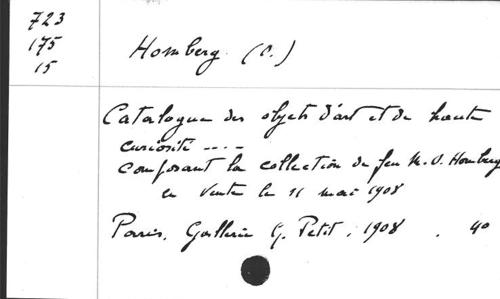 723
175
15
Homberg. (O.)
Catalogue des objets d'art et de haute
curiosité ....
composant la collection de feu M. O. Homberg
en vente le 11 mai 1908
Paris, Gallerie G. Petit, 1908 . 40